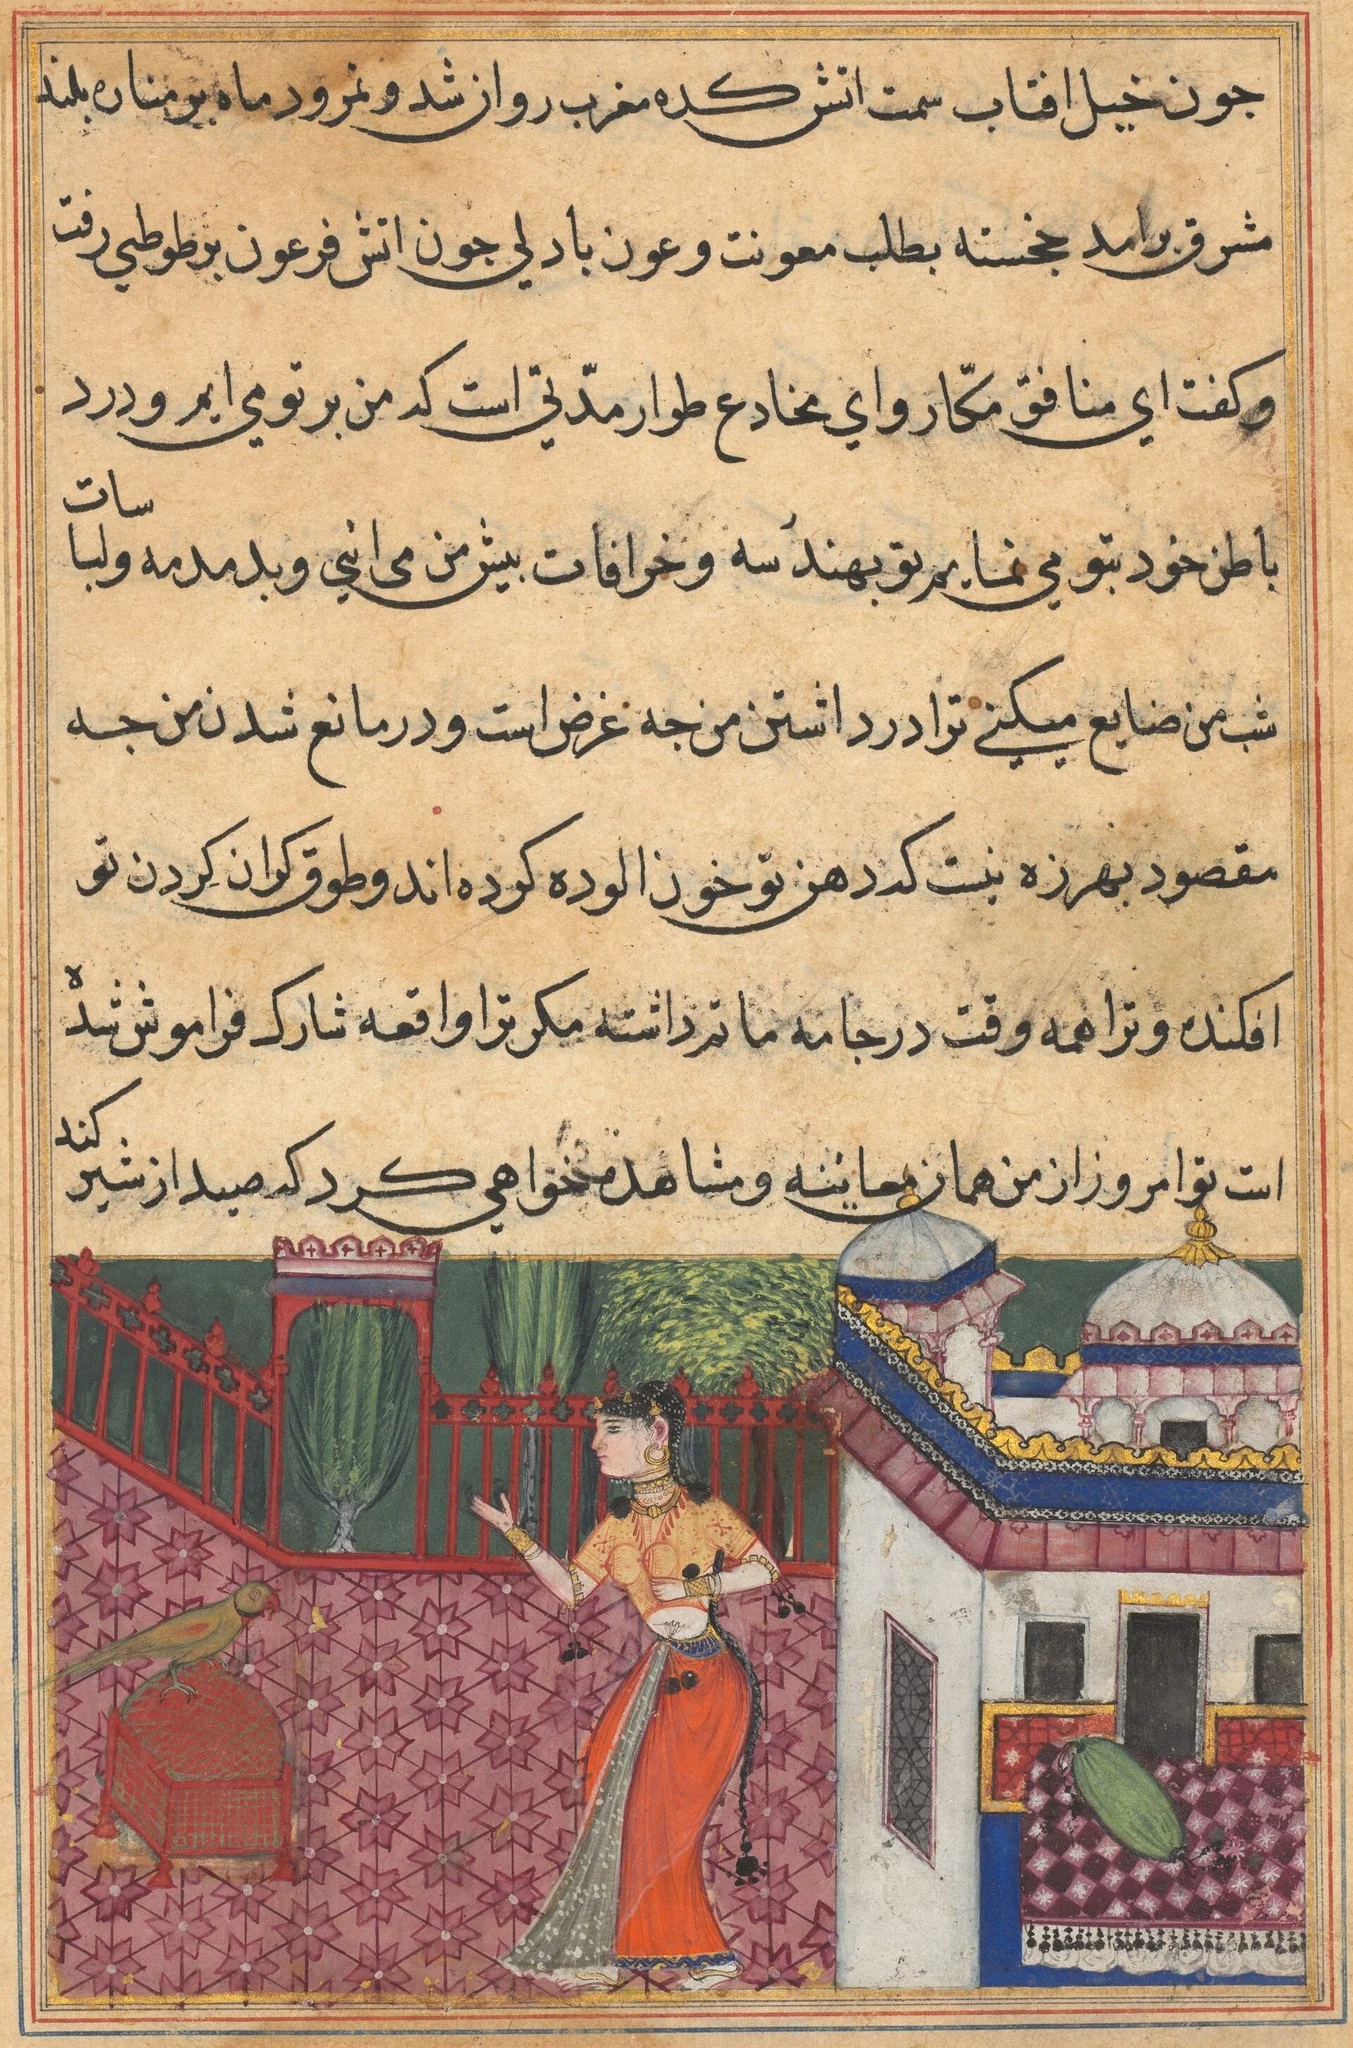 جون خیل افتاب سمت اتش کده مغرب روان شد و نمرود ماه بر مناره بلند
مشرق برامد خجسته بطلب معونت و عون با دلی جون اتش فرعون بر طوطی رفت
و کفت ای منافق مکّار و ای مخادع طرار مدّتی است که من بر تو می ایم و درد
باطن خود بتو می نمایم تو بهندسه و خرافات بیش من می ائی و بدمدمه و لباسات
شب من ضایع میکنی ترا در داشتن من جه غرض است و در مانع شدن من جه
مقصود بهرزه نیست که دهن تو خون الوده کرده اند و طوق کران کردن تو
افکنده و ترا همه وقت در جامه ماتم داشته مکر ترا واقعه شارک فراموش شده
است تو امروز از من همان معاینه و مشاهده خواهی کرد که صید از شیر کند